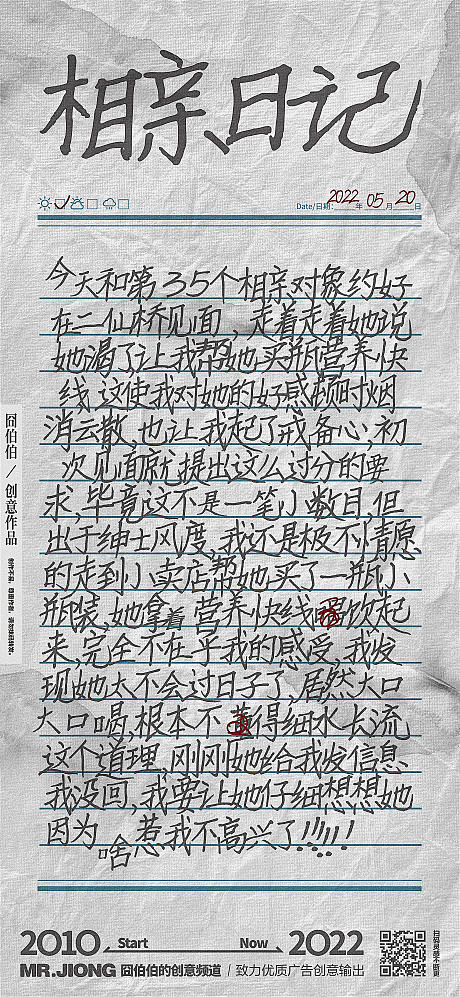 相亲日记
Date/日期: 2022 年 05 月 20 日
今天和第35个相亲对象约好
在二仙桥见面，走着走着她说
她渴了让我帮她买瓶营养快
线，这使我对她的好感顿时烟
消云散，也让我起了戒备心，初
次见面就提出这么过分的要
求，毕竟这不是一笔小数目，但
出于绅士风度，我还是极不情愿
的走到小卖店帮她买了一瓶小
瓶装，她拿着营养快线 饮起
来，完全不在乎我的感受，我发
现她太不会过日子了，居然大口
大口喝，根本不懂得细水长流
这个道理，刚刚她给我发信息
我没回，我要让她仔细想想她
因为啥惹我不高兴了!!!!!
囧伯伯 / 创意作品
2010 Start Now 2022
MR.JIONG 囧伯伯的创意频道 / 致力优质广告创意输出